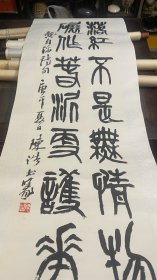 落紅不是無情物
化作春泥更護花
龔自珍詩句
夏日